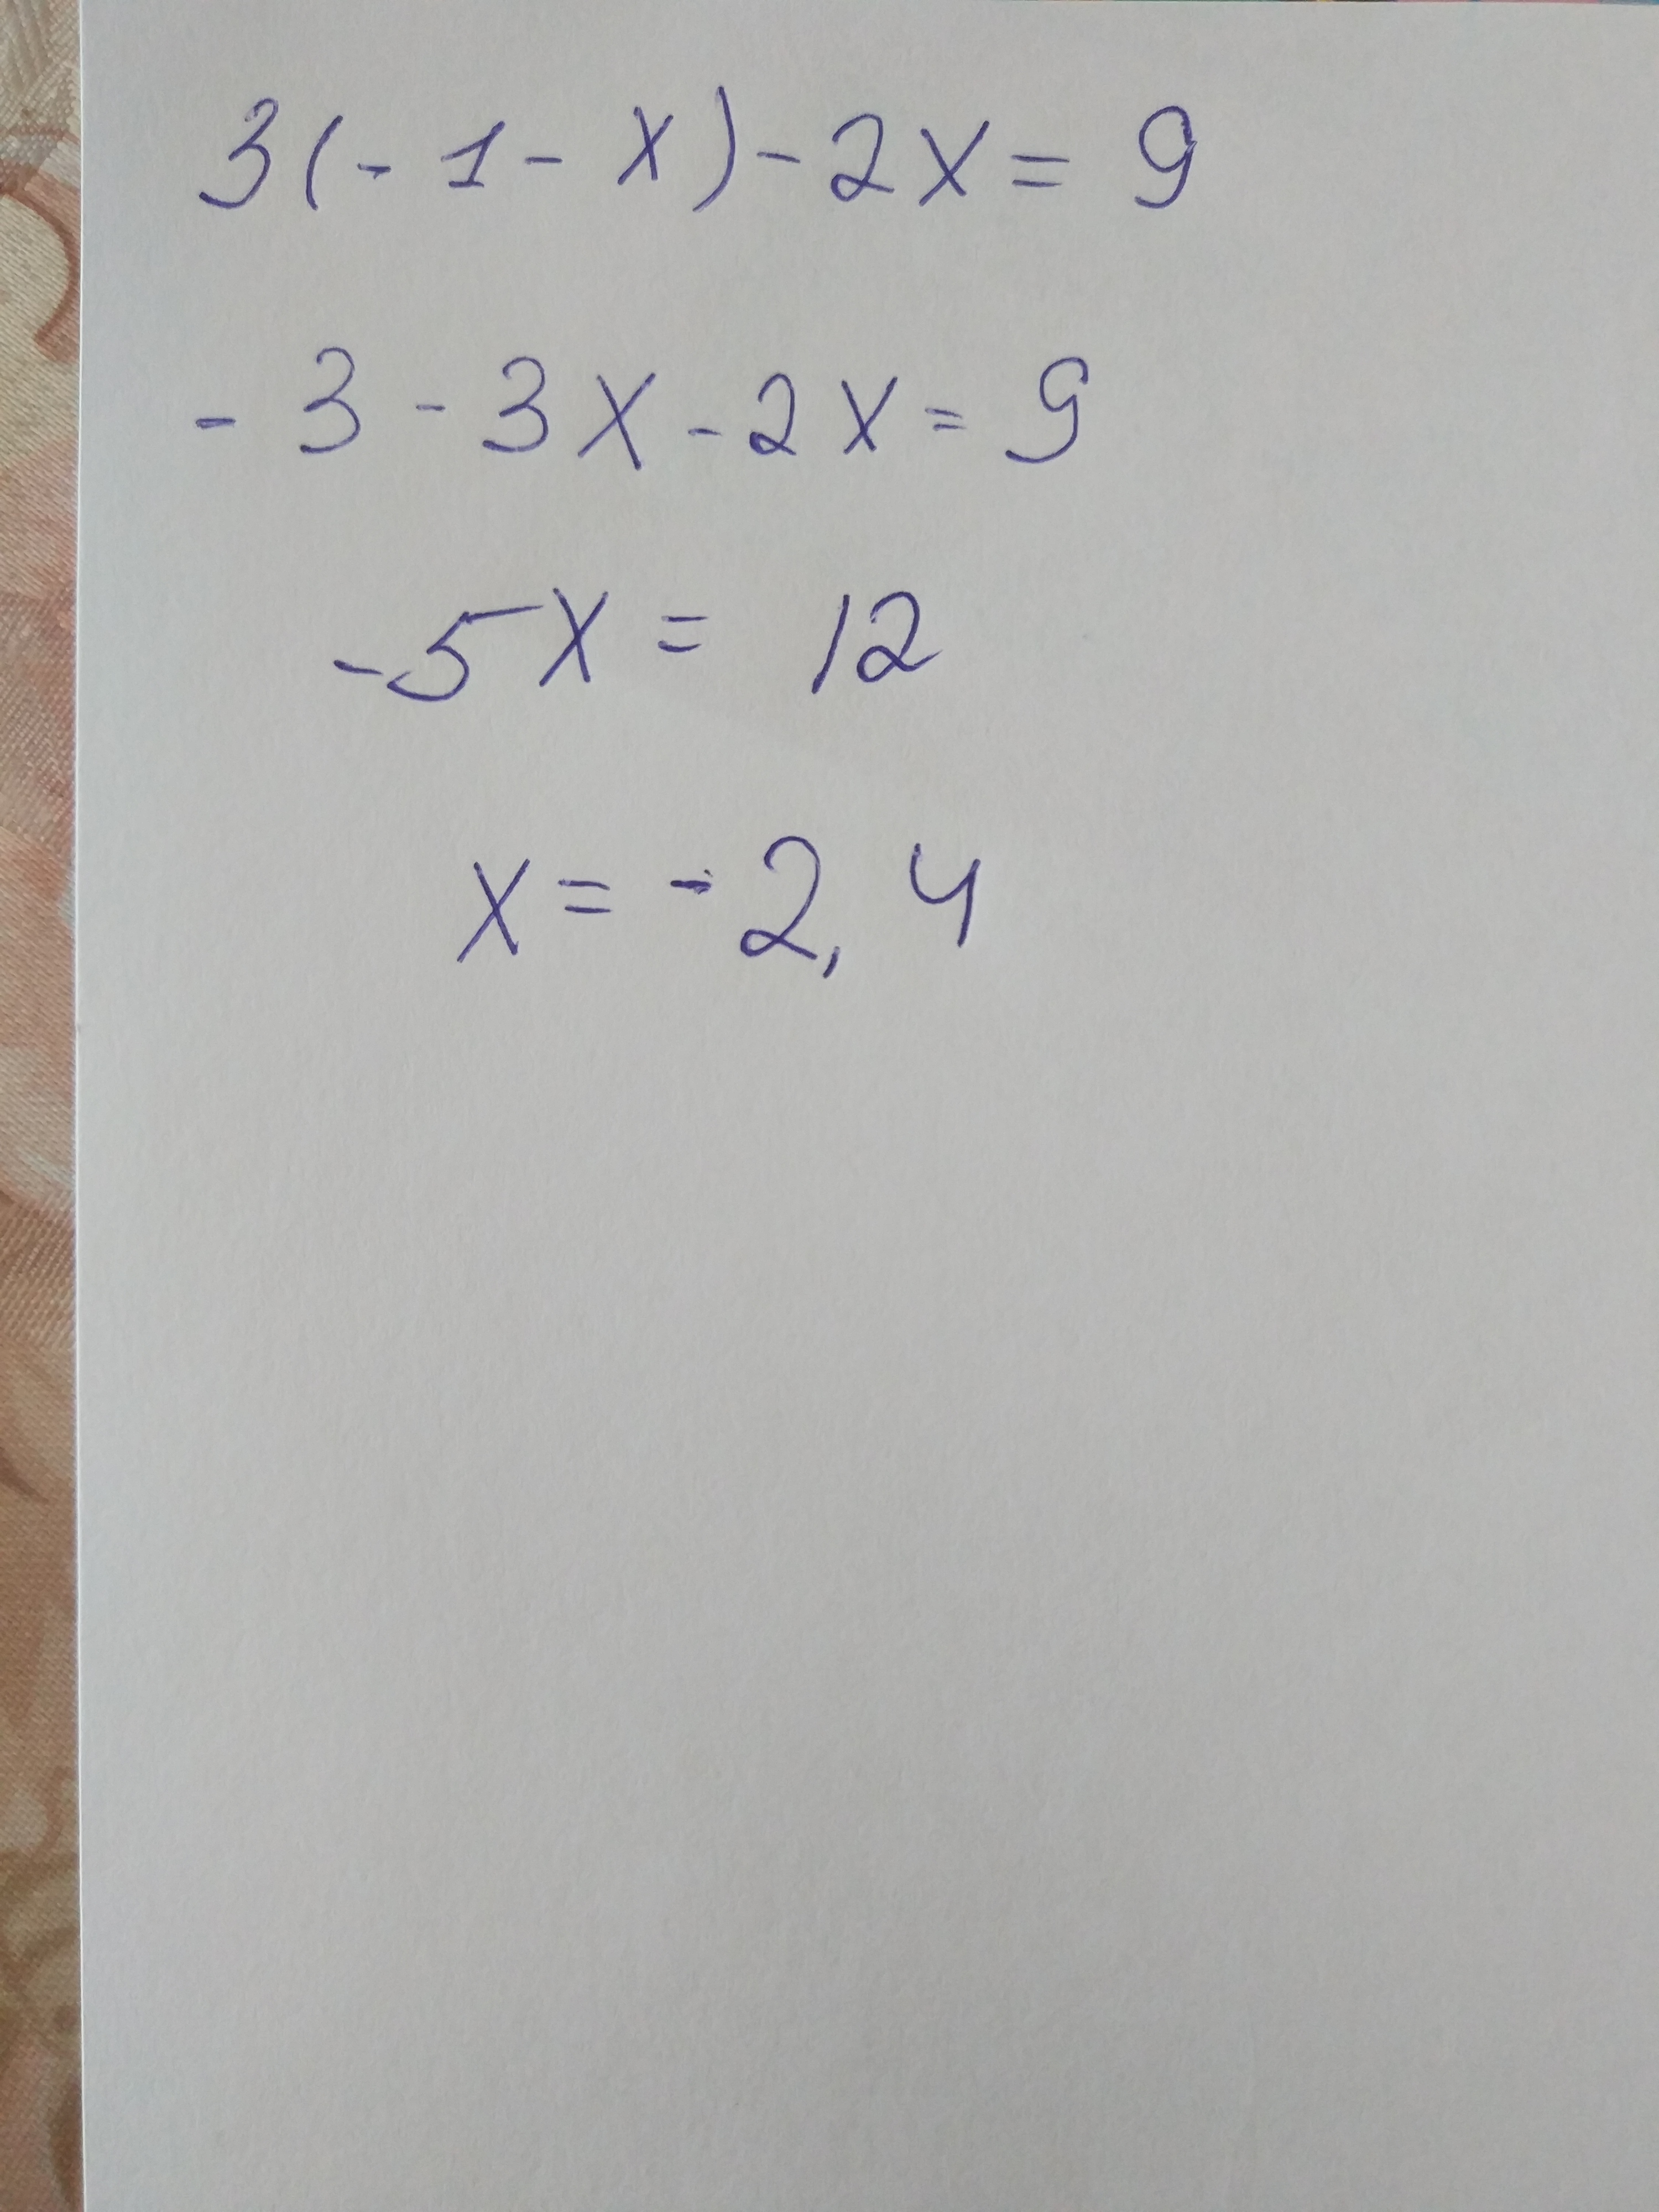 3(-1-x)-2x=9
-3-3x-2x=9
-5x=12
x=-2,4